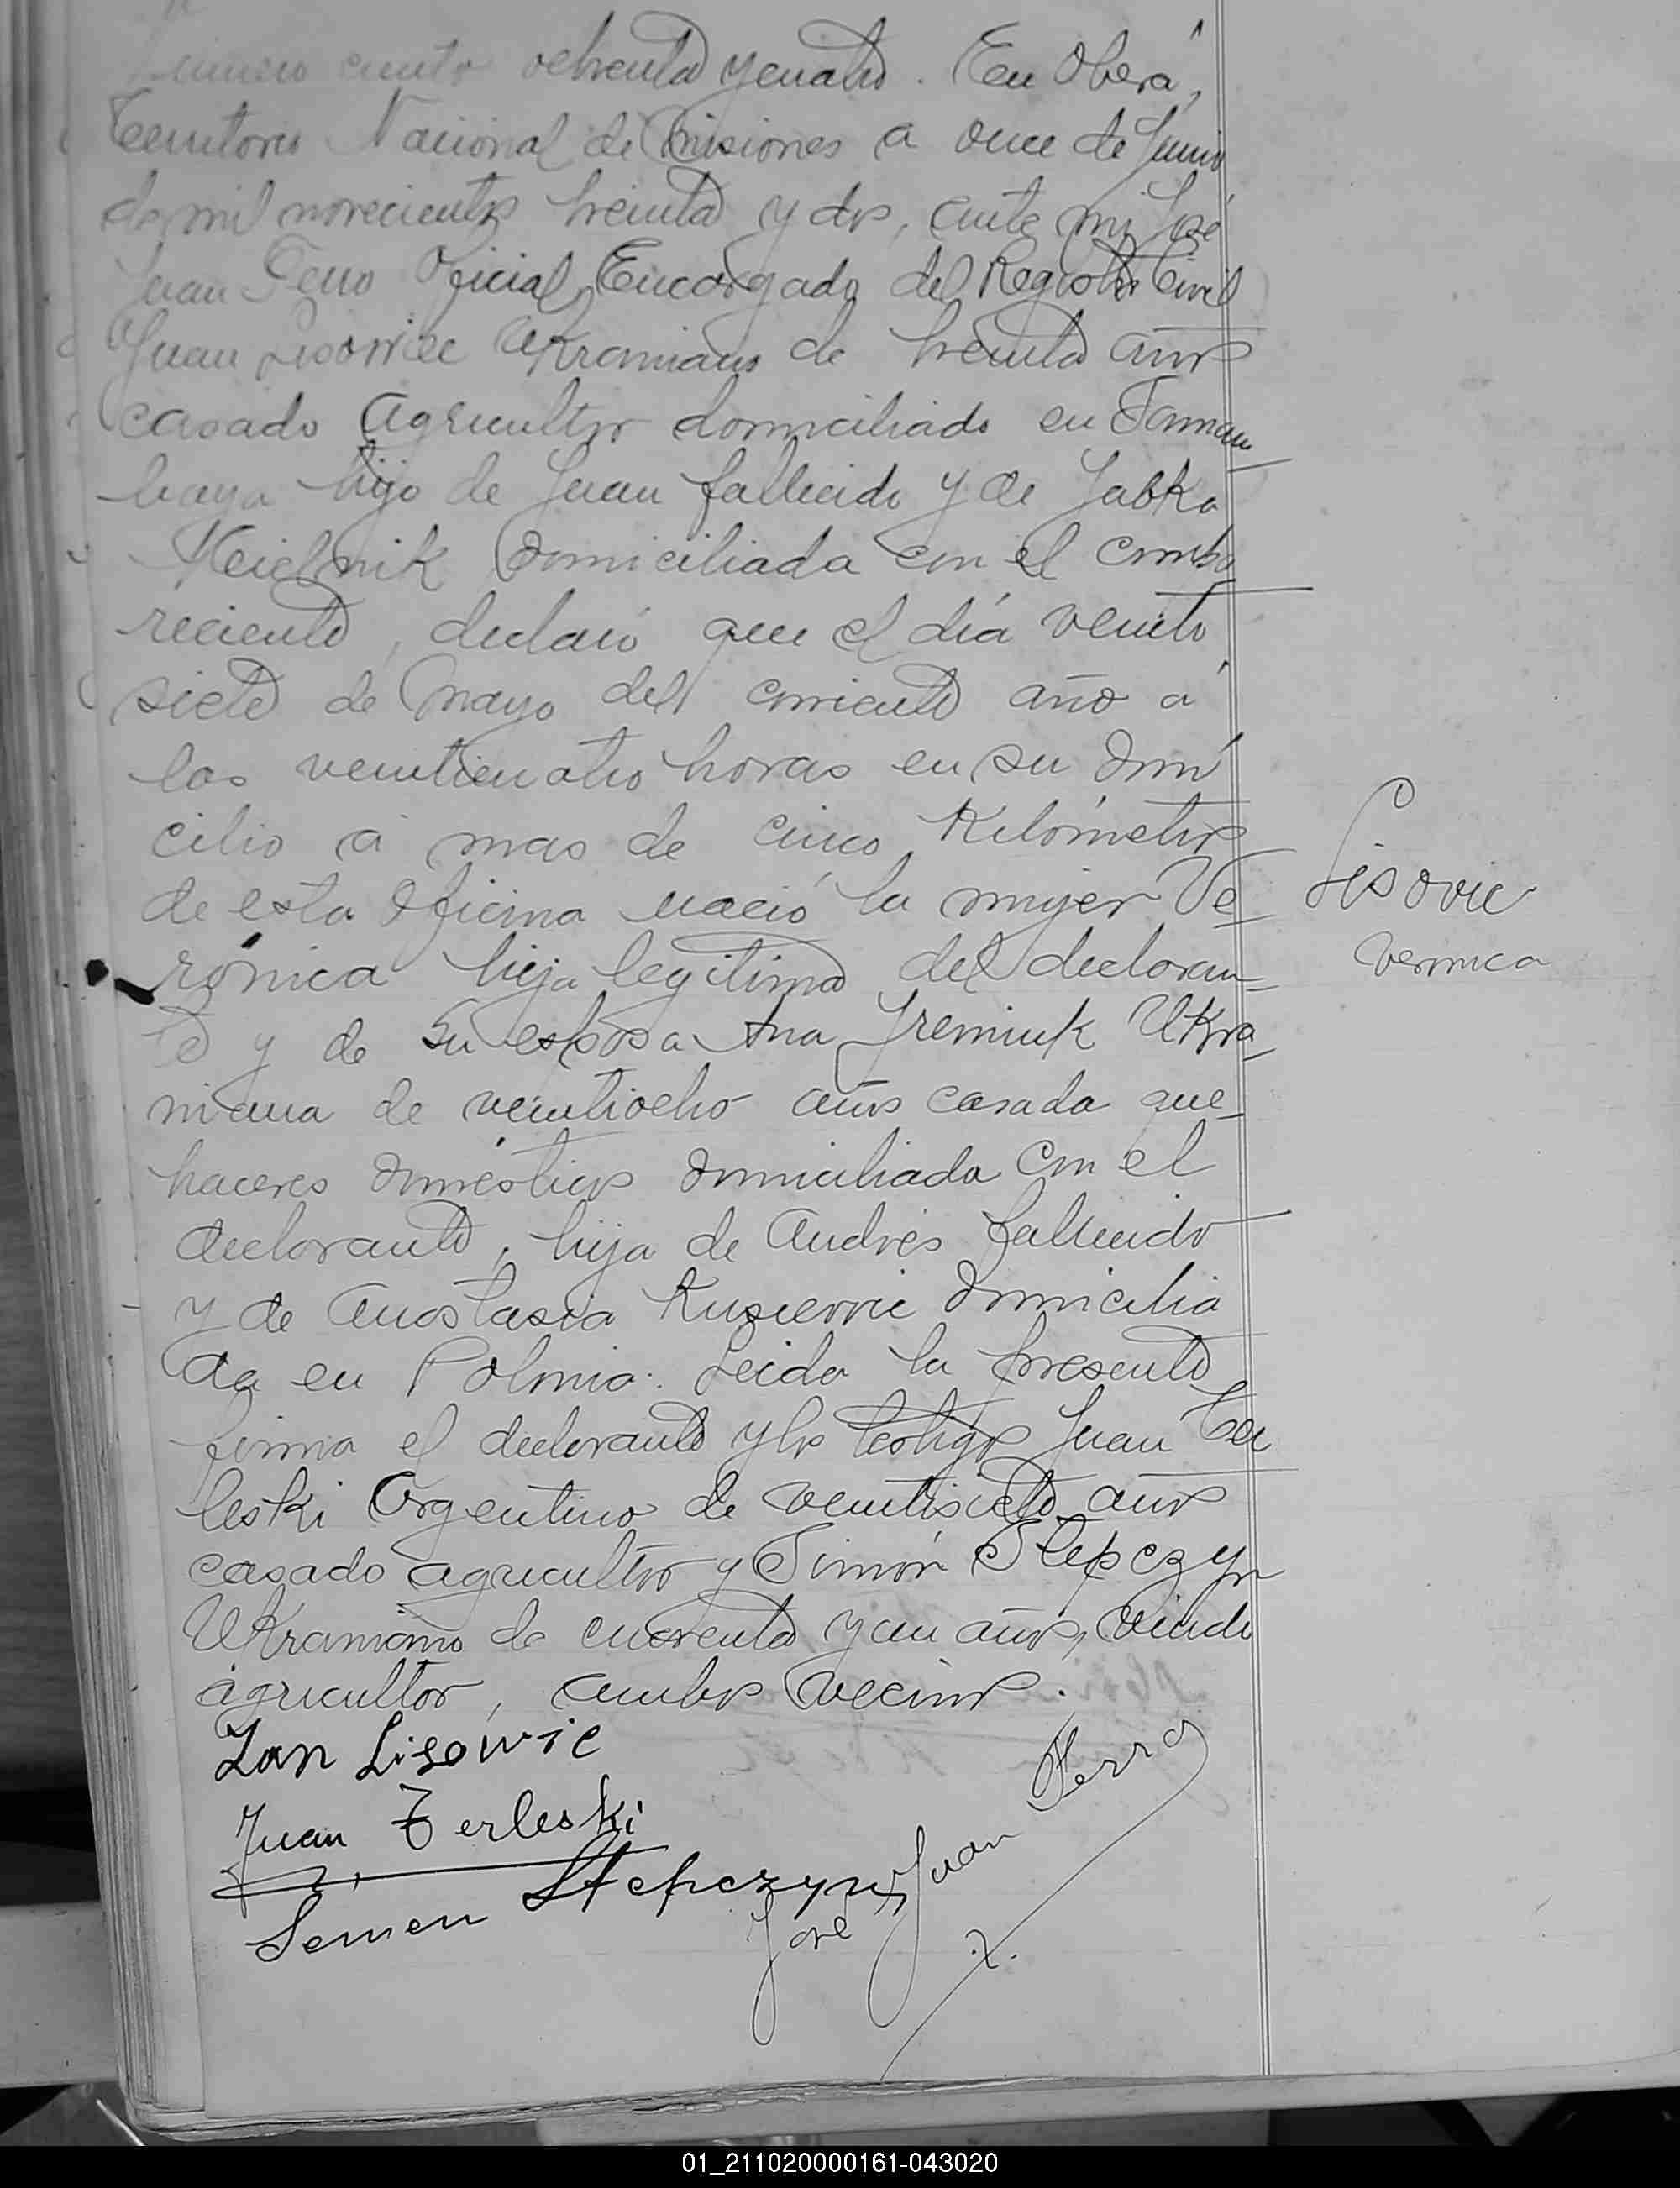 Número ciento ochenta y cuatro. En Oberá,
Territorio Nacional de Misiones a once de Junio
de mil novecientos treinta y dos, ante mi José
Juan Ferro Oficial Encargado del Registro Civil
Juan Lisowiec Ukraniano de treinta años
casado agricultor domiciliado en
hijo de Juan fallecido y de Jabka
Meielnik domiciliada con el compa
reciente, declaró que el día veinti
siete de Mayo del corriente año a
las veinticuatro horas en su domi
cilio a mas de cinco Kilómetros
de esta Oficina nació la mujer Ve
rónica hija legitima del declaran
te y de su esposa Ana Jremiuk Ukra
niana de veintiocho años casada que
haceres domésticos domiciliada con el
declarante, hija de Andrés fallecido
y de Anastasia Kusiervie domicilia
da en Polonia. Leida la presente
firma el declarante y los testigos Juan Ter
leski Argentino de veintisiete años
casado agricultor y Simón Stepczyn
Ukraniano de cuarenta y un años, viudo
agricultor, ambos vecinos.
Lisovic
Veronica
Jan Lisowic
Juan Terleski
Semen Stepczyn
José Juan Ferro
01_211020000161-043020